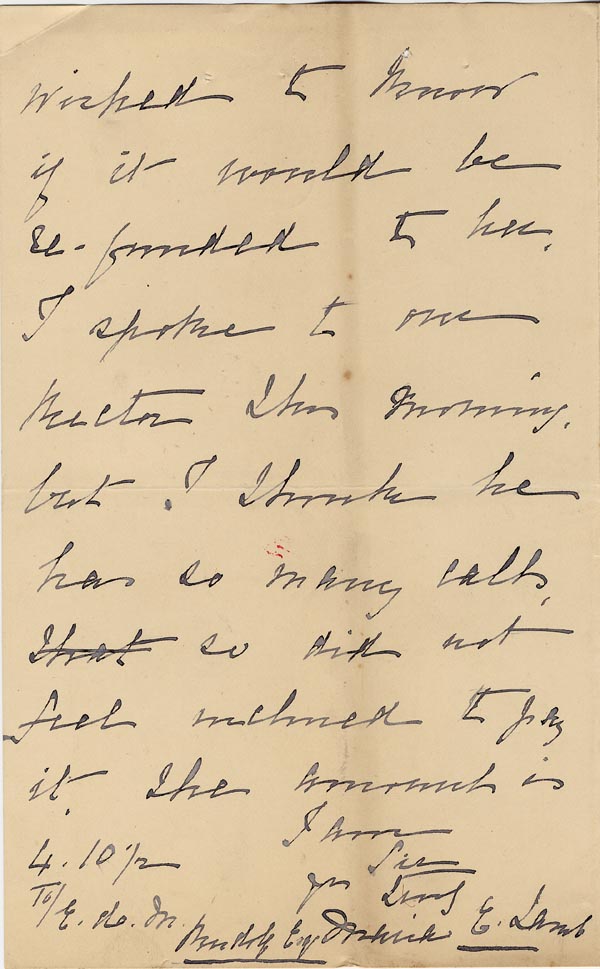 wished to know
if it would be
re-funded to her.
I spoke to our
Rector this morning,
but I think he
has so many calls,
that so did not
feel inclined to pay
it. The amount is
4.10½ I am
Sir
yrs truly
E. Lamb
To/ E. d. M.
Esq